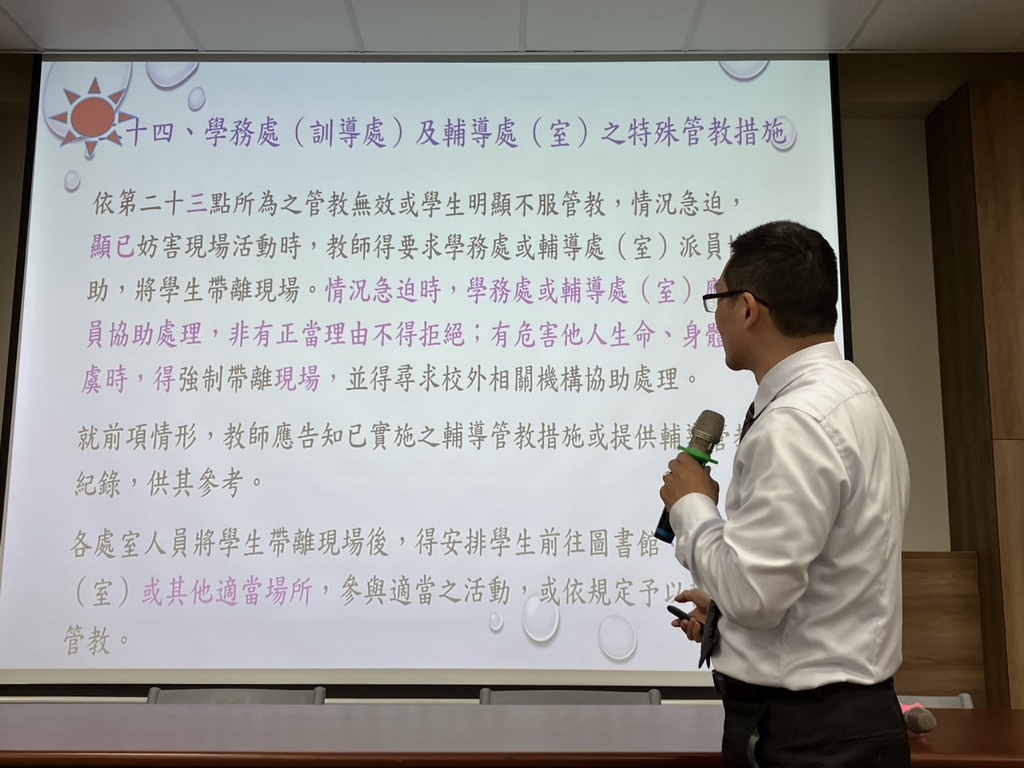 十四、學務處（訓導處）及輔導處（室）之特殊管教措施
依第二十三點所為之管教無效或學生明顯不服管教，情況急迫，
顯已妨害現場活動時，教師得要求學務處或輔導處（室）派員
助，將學生帶離現場。情況急迫時，學務處或輔導處（室）
員協助處理，非有正當理由不得拒絕；有危害他人生命、身體
虞時，得強制帶離現場，並得尋求校外相關機構協助處理。
就前項情形，教師應告知已實施之輔導管教措施或提供輔導管教
紀錄，供其參考。
各處室人員將學生帶離現場後，得安排學生前往圖書館
（室）或其他適當場所，參與適當之活動，或依規定予以
管教。